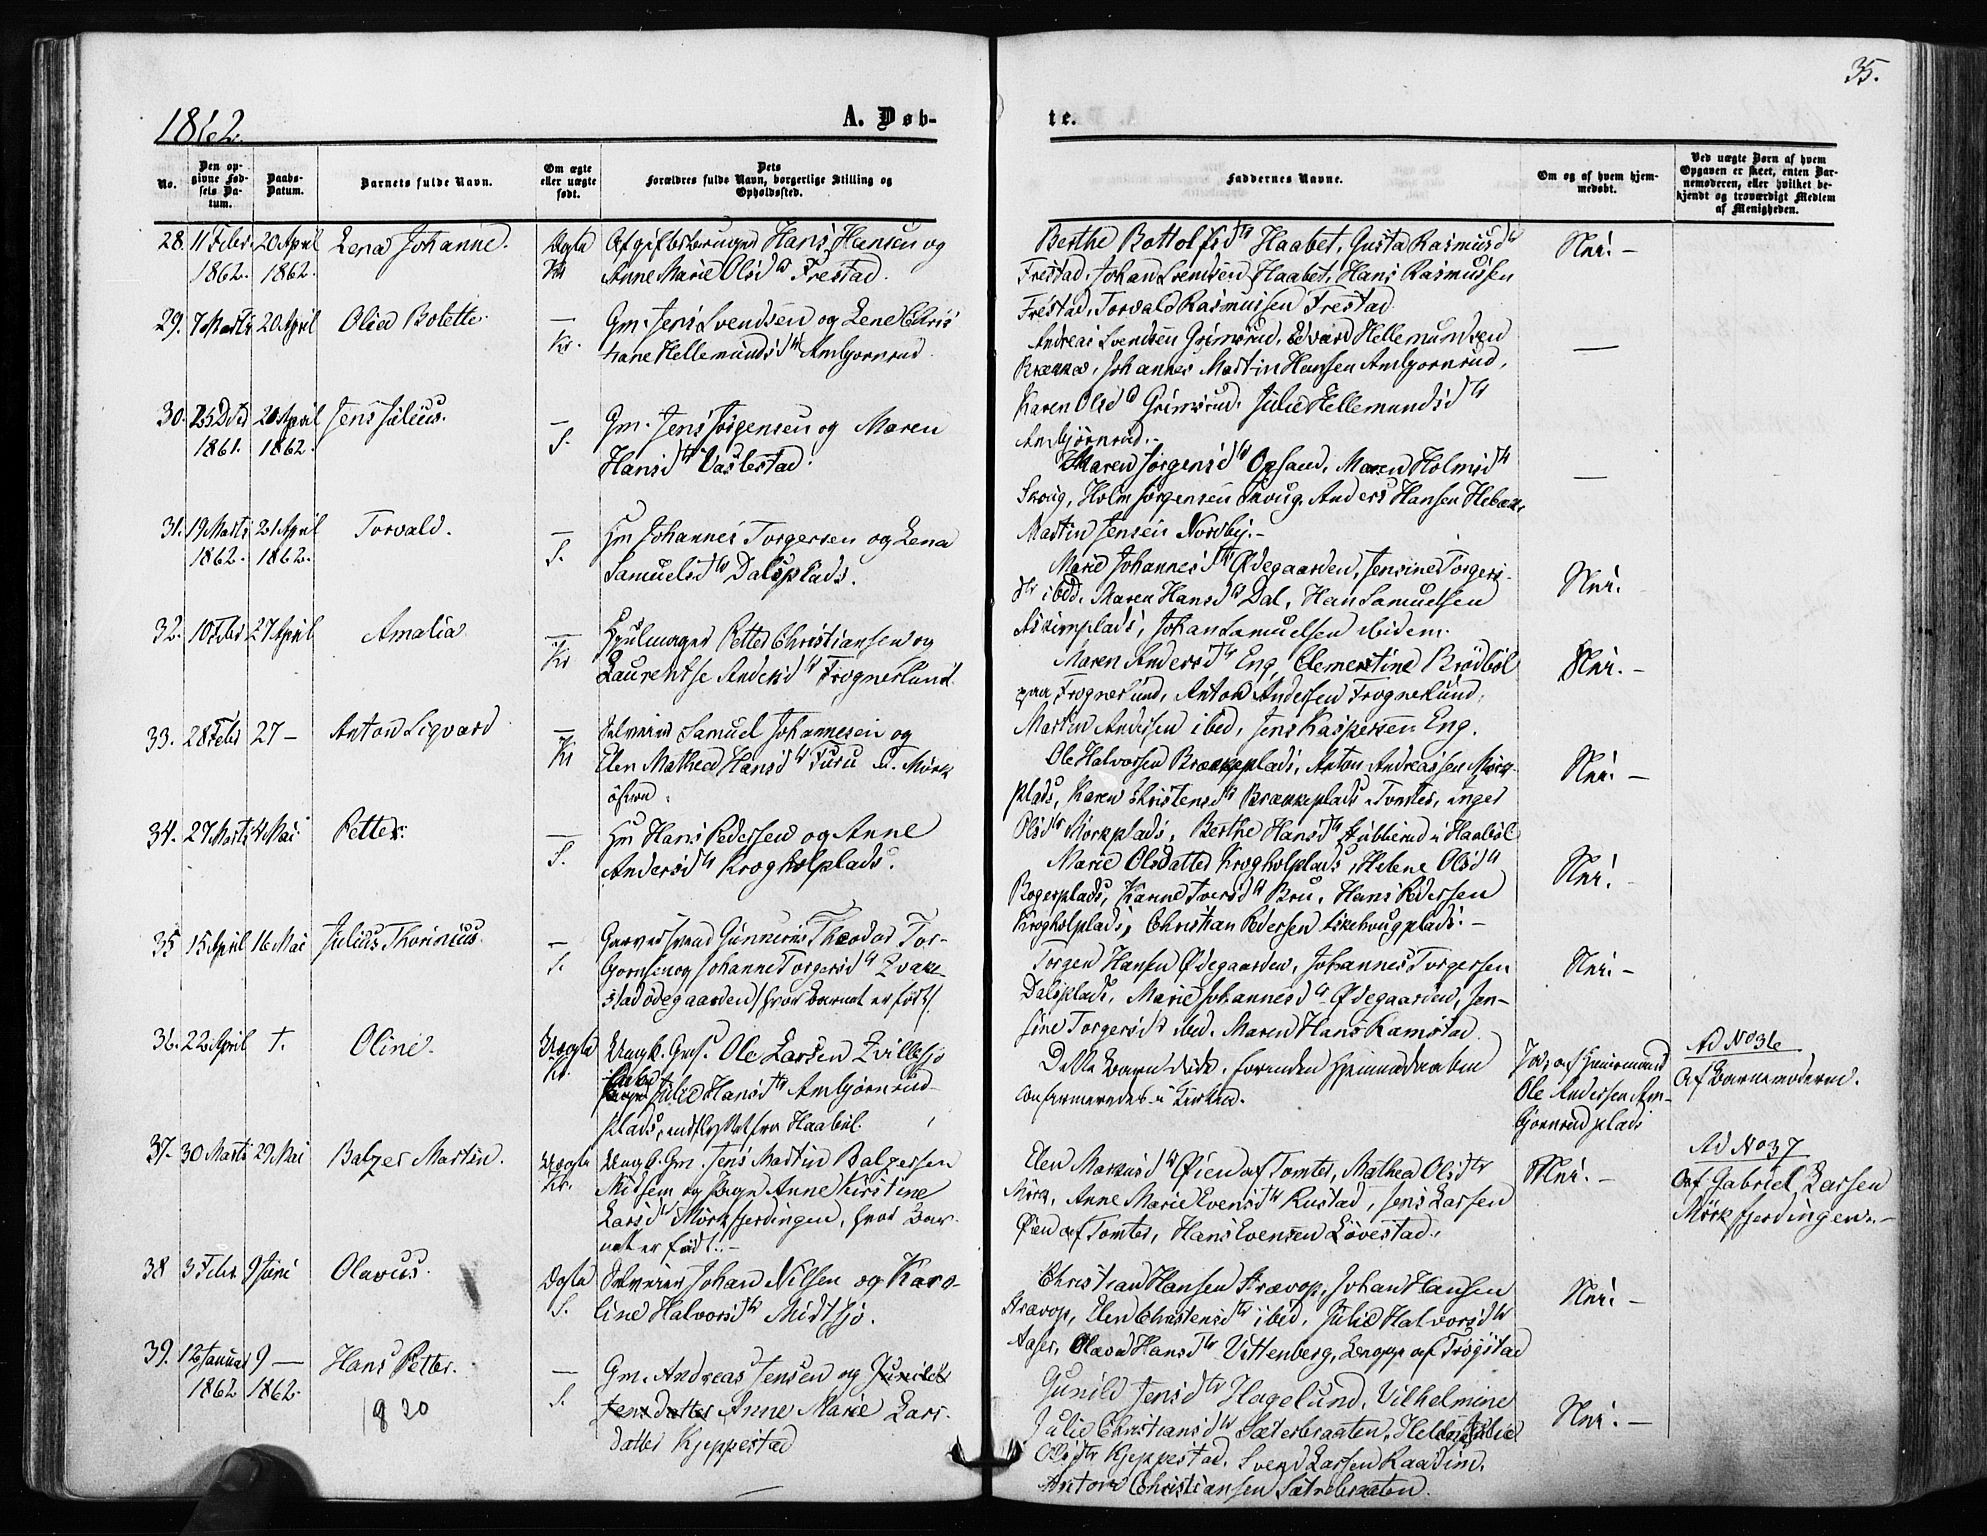 35.
1862.
A. Døb-
te.
No.
Den op-
givne Fød-
sels Da-
tum.
Daabs-
Datum.
Barnets fulde Navn.
Om ægte
eller uægte
født.
Dets
Forældres fulde Navn, borgerlige Stilling og
Opholdssted.
Faddernes Navne.
Om og af hvem hjem-
medøbt.
Ved uægte Børn af hvem
Opgaven er skeet, enten Bar-
nemoderen, eller hvilket be-
kjendt og troværdigt Medlem
af Menigheden.
28. 11 Febr 20 April Lena Johanne. Ægte Afgiftsbruger Hans Hansen og
1862. 1862. Kr Anne Marie Olsdtr Frestad.
Berthe Bottolfsdtr Haabet, Gusta Rasmusdtr
Frestad, Johan Svendsen Haabet, Hans Rasmussen
Frestad, Torvald Rasmussen Frestad
Nei. –
29. 7 Marts 20 April Olea Bolette. — Gm. Jens Svendsen og Lene Chris
Kr. tiane Hellemundsdtr Ambjornrud.
Andreas Svendsen Grimsrud, Edvard Hellemundsen
Krænna, Johannes Martin Hansen Ambjornrud,
Karen Olsdtr Grimsrud, Julie Hellemundsdtr
Ambjørnrud.-
—
30. 25 Dcbr 20 April Jens Julius. — Gm. Jens Jørgensen og Maren
1861. 1862. S. Hansdtr Vaslestad.
Maren Jørgensdtr Opsand, Maren Holmsdtr
Skoug, Holm Jørgensen Skoug, Anders Hansen
Martin Jensen Nordby.-
—
31. 19 Marts 21 April Torvald. — Hm Johannes Torgersen og Lena
1862. 1862. S. Samuelsdtr Dalsplads.
Marie Johannesdtr Ødegaarden, Jensine Torgers-
dtr ibid. Maren Hansdtr Dal, Han Samuelsen
Askimplads, Johan Samuelsen ibidem.
Nei.
32. 10 Febr 27 April Amalia — Hjulmager Petter Christiansen og
Kr Laurentse Andersdtr Frognerlund.
Maren Andersdtr Eng, Clementine Brødbøl
paa Frognerlund, Anton Andersen Frognerlund,
Martin Andersen ibid, Jens Kaspersen Eng.
Nei. –
33. 28 Febr 27 — Anton Sigvard — Selveier Samuel Johannesen og
Kr Elen Mathea Hansdtr Furu u. Mørk
østren.
Ole Halvorsen Brækkeplads, Anton Andreassen Mørk-
plads, Karen Christensdtr Brækkeplads i Tomter, Inger
Olsdtr Mørkplads, Berthe Hansdtr Stubberud i Haabøl
Nei. –
34. 27 Marts 4 Mai. Petter. — Hm Hans Pedersen og Anne
S. Andersdtr Krogholplads.
Marie Olsdatter Krogholplads, Helene Olsdtr
Bogerplads, Karine Iversdtr Bru, Hans Pedersen
Krogholplads, Christian Pedersen Askehougplads.-
Nei.
35 15 April 16 Mai Julius Thorinius. — Garversvend Gunnerius Theodor Tor-
S. Gornsen og Johanne Torgersdtr Zvake-
stadødegaarden (hvor Barnet er født).
Torger Hansen Ødegaarden, Johannes Torgersen
Dalsplads, Marie Johannesdtr Ødegaarden, Jen-
sine Torgersdtr ibid. Maren Hans Ramstad.
Nei. –
36. 22 April †. Oline. Uægte Ungk. Gmf. Ole Larsen Zvillesjø
Kr. Pige Julie Hansdtr Ambjørnrud-
plads, indflyttet fra Haabøl.
Dette Barn døde, forinden Hjemmedaaben
confirmeredes i Kirken.
Ja, af Huusmand
Ole Andersen Am-
bjornrudplads
Ad No 36
Af Barnemoderen.
37. 30 Marts 29 Mai Balzer Martin. Uægte Ungk. Gm. Jens Martin Balzersen
Kr. Midsem og Pige Anne Kirstine
Larsdtr Mørkfjerdingen, hvor Bar-
net er født.-
Elen Markusdtr Øien af Tomter, Mathea Olsdtr
Mørk, Anne Marie Evensdtr Rustad, Jens Larsen
Øien af Tomter, Hans Evensen Løvestad.
Nei. –
Ad No 37
Af Gabriel Larsen
Mørkfjerdingen.-
38 3 Febr. 9 Juni Olavus. Ægte Selveier Johan Nilsen og Karo-
S. line Halvorsdtr Midtsjø.
Christian Hansen Aravop, Johan Hansen
Aravop, Elen Christensdtr ibid, Julie Halvorsdtr
Aaser, Olava Hansdtr Vittenberg, Lnopp af Trøgstad
Nei. –
39. 12 Januar 9 — Hans Petter. — Gm. Andreas Jensen og Gunild
1862 1862. S. Jensdatter Anne Marie Lars-
datter Kjeppestad
Gunild Jensdtr Hagelund, Vilhelmine
Julie Christiansdtr Sæterbraaten, Helene Julie
Olsdtr Kjeppestad, Svend Larsen Raadim,
Anton Christiansen Sætrebraaten.
Nei. –
9 20